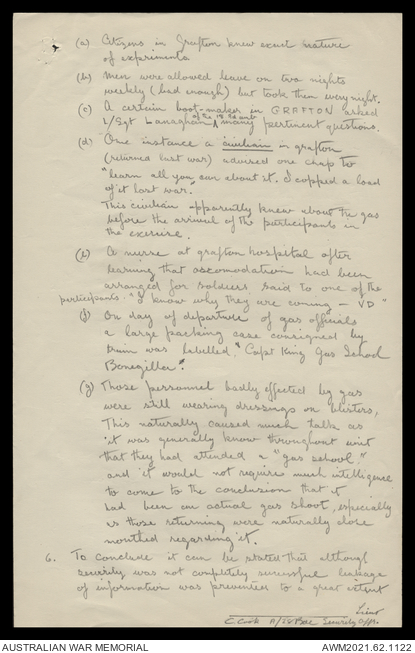 (a) Citizens in Grafton knew exact nature
of experiments
(b) Men were allowed leave on two nights
weekly (bad enough) but took then every night.
(c) A certain boot-maker in GRAFTON asked
L/Sgt Lanaghan of the 15 Fd amb many pertinent questions.
(d) One instance a civilian in grafton
(returned last war) advised one chap to
"learn all you can about it. I copped a load
of it last war."
This civilian apparently knew about the gas
before the arrival of the participants in
the exercise.
(e) A nurse at grafton hospital after
learning that accomodation had been
arranged for soldiers said to one of the
participants. "I know why they are coming – VD"
(f) On day of departure of gas officials
a large packing case consigned by
train was labelled, "Capt King Gas School
Bonegilla".
(g) Those personnel badly effected by gas
were still wearing dressings on blisters,
This naturally caused much talk as
it was generally know throughout unit
that they had attended a "gas school"
and it would not require much intelligence
to come to the conclusion that it
had been an actual gas shoot, especially
as those returning were naturally close
mouthed regarding it.
6. To conclude it can be stated that although
security was not completely successful leakage
of information was prevented to a great extent
Lieut
C Cook Security Offr.
AUSTRALIAN WAR MEMORIAL
AWM2021.62.1.122